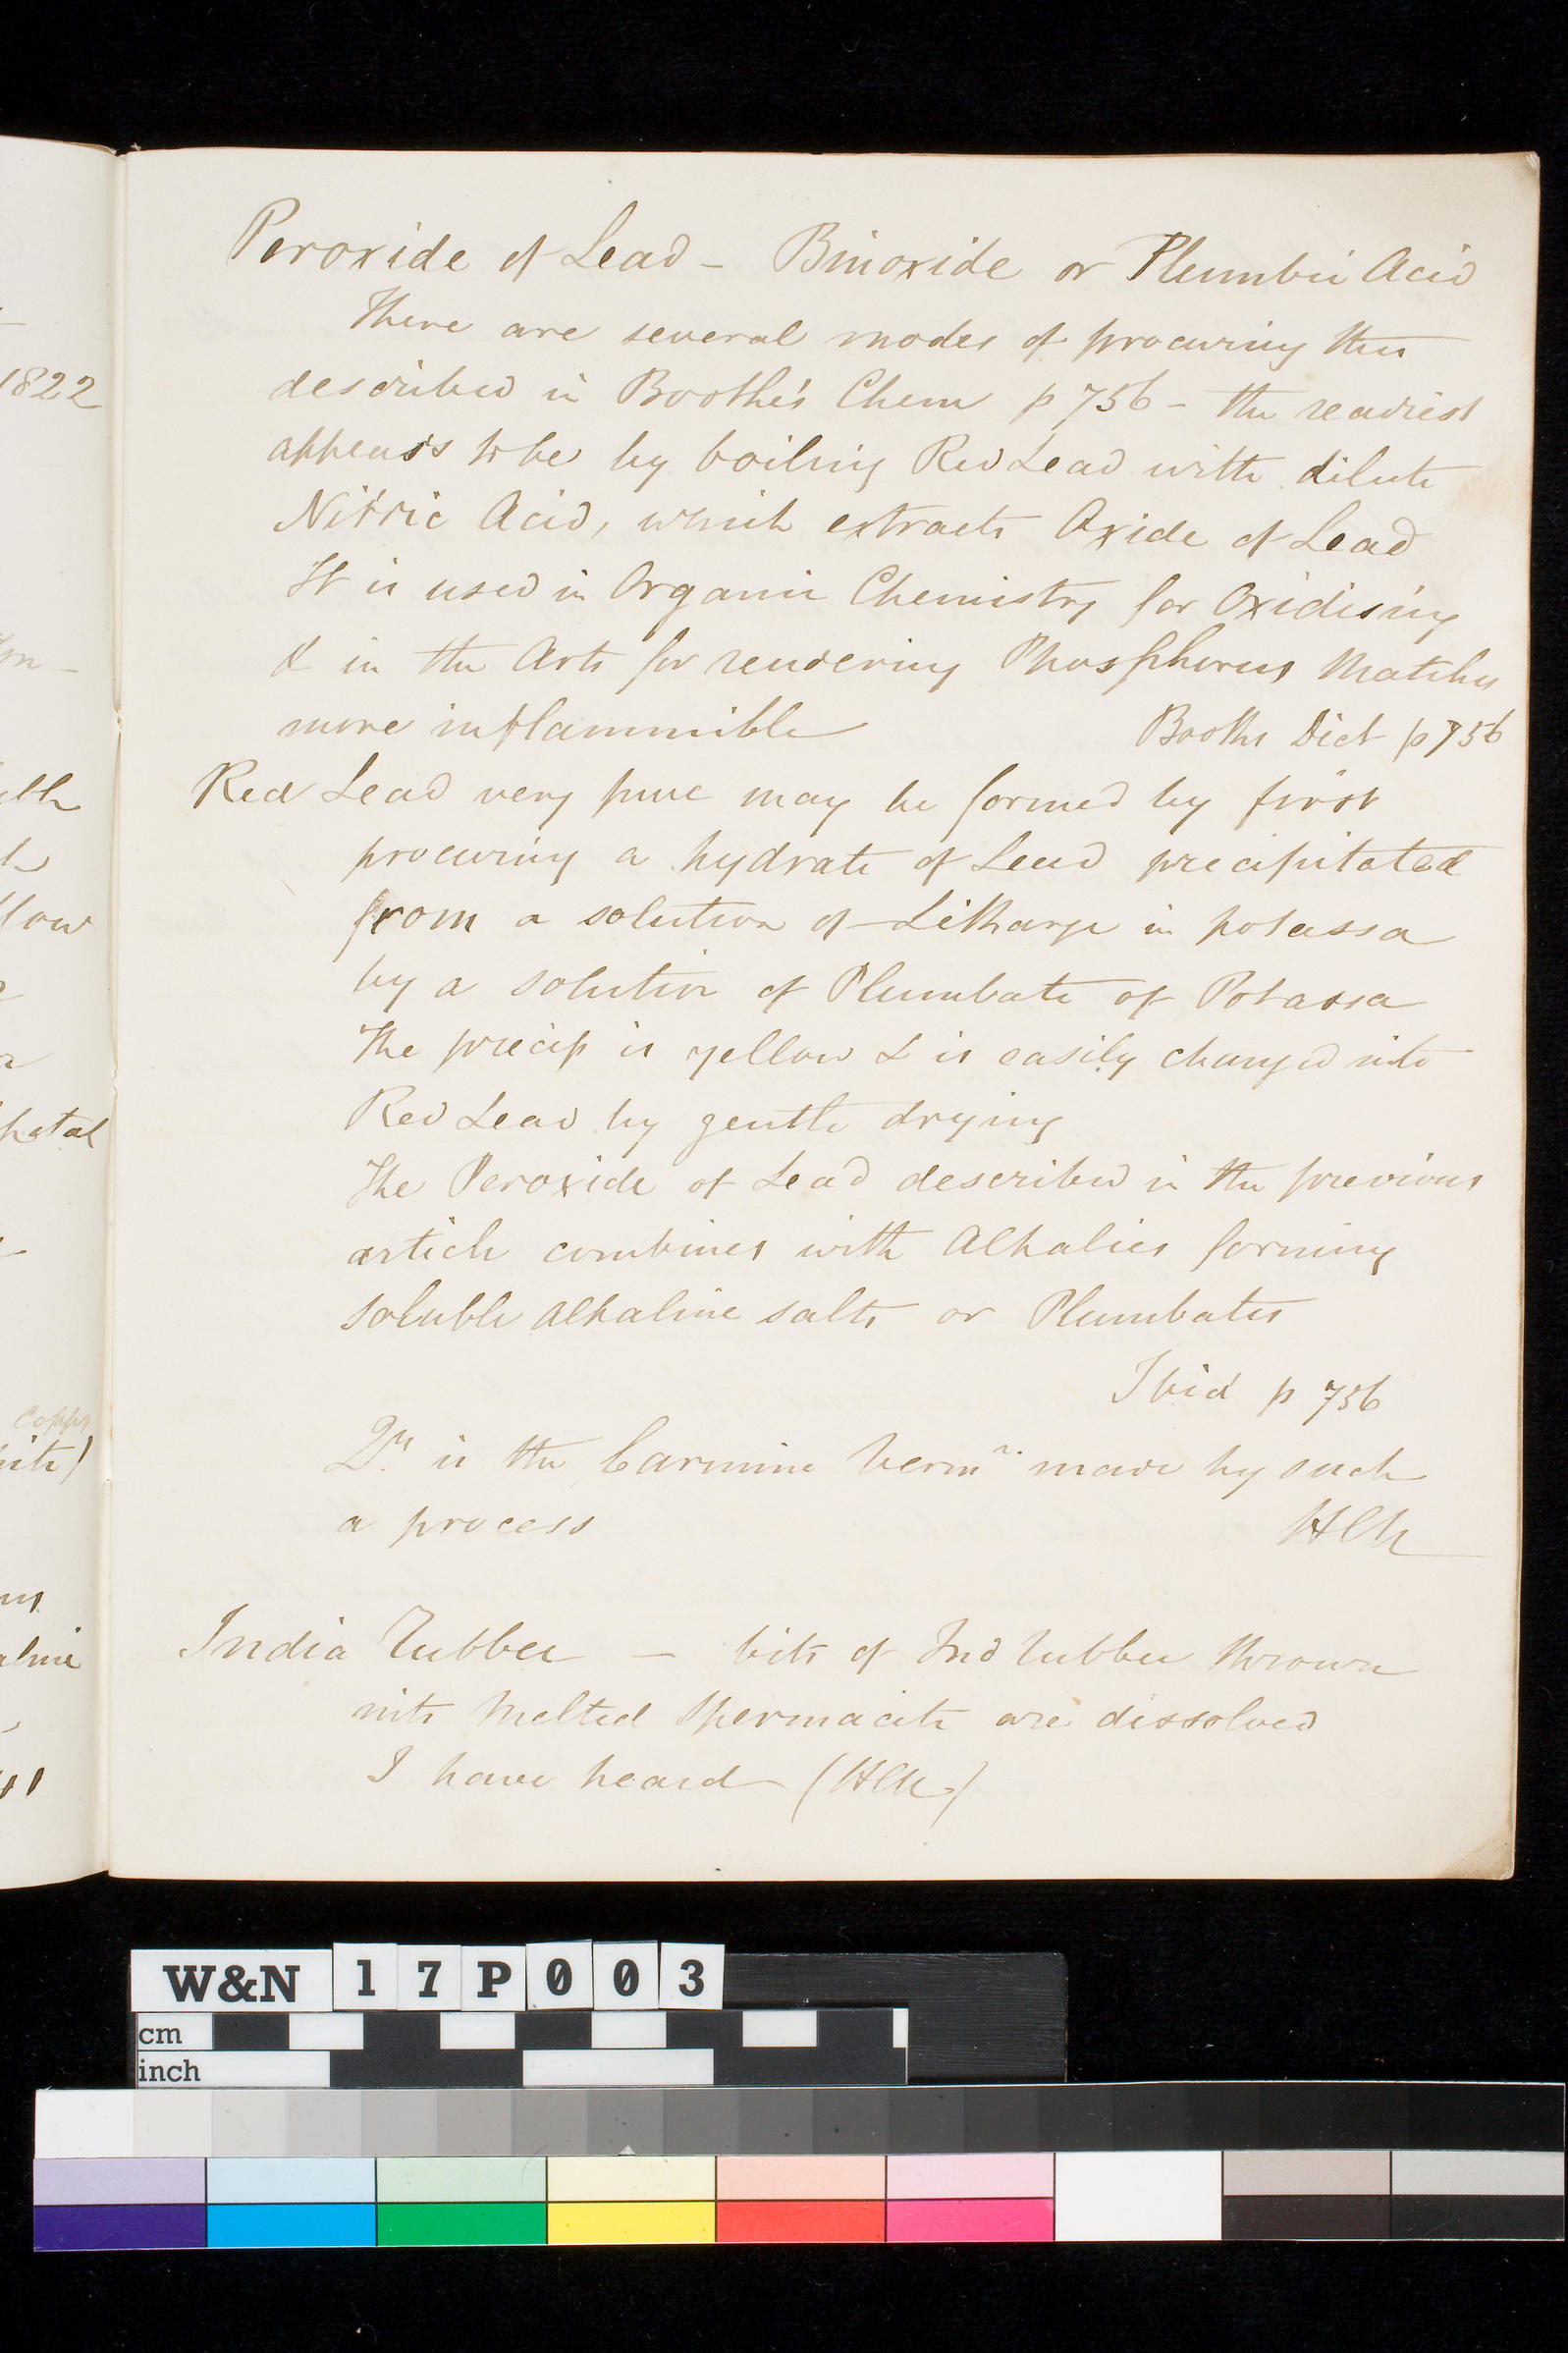 Peroxide of Lead - Binoxide or Plumbic Acid
There are several modes of procuring this
described in Boothe's Chem p 756 - the readiest
appears to be by boiling Red Lead with dilute
Nitric Acid, which extracts Oxide of Lead
It is used in Organic Chemistry for Oxidising
& in the Arts for rendering Phosphorus Matches
more inflammible Booths Dict p 756
Red Lead very pure may be formed by first
procuring a hydrate of Lead precipitated
from a solution of Litharge in potassa
by a solution of Plumbate of Potassa
The precip is yellow & is easily changed into
Red Lead by gentle drying
The Peroxide of Lead described in the previous
article combines with Alkalies forming
soluble alkaline salts or Plumbates
Ibid p 756
Qy is the Carmine Vermn made by such
a process HCN
India Rubber - bits of Ind rubber thrown
into melted Spermaceti are dissolved
I have heard (HCN)
1822
low
Copper
W&N 17P003
cm
inch